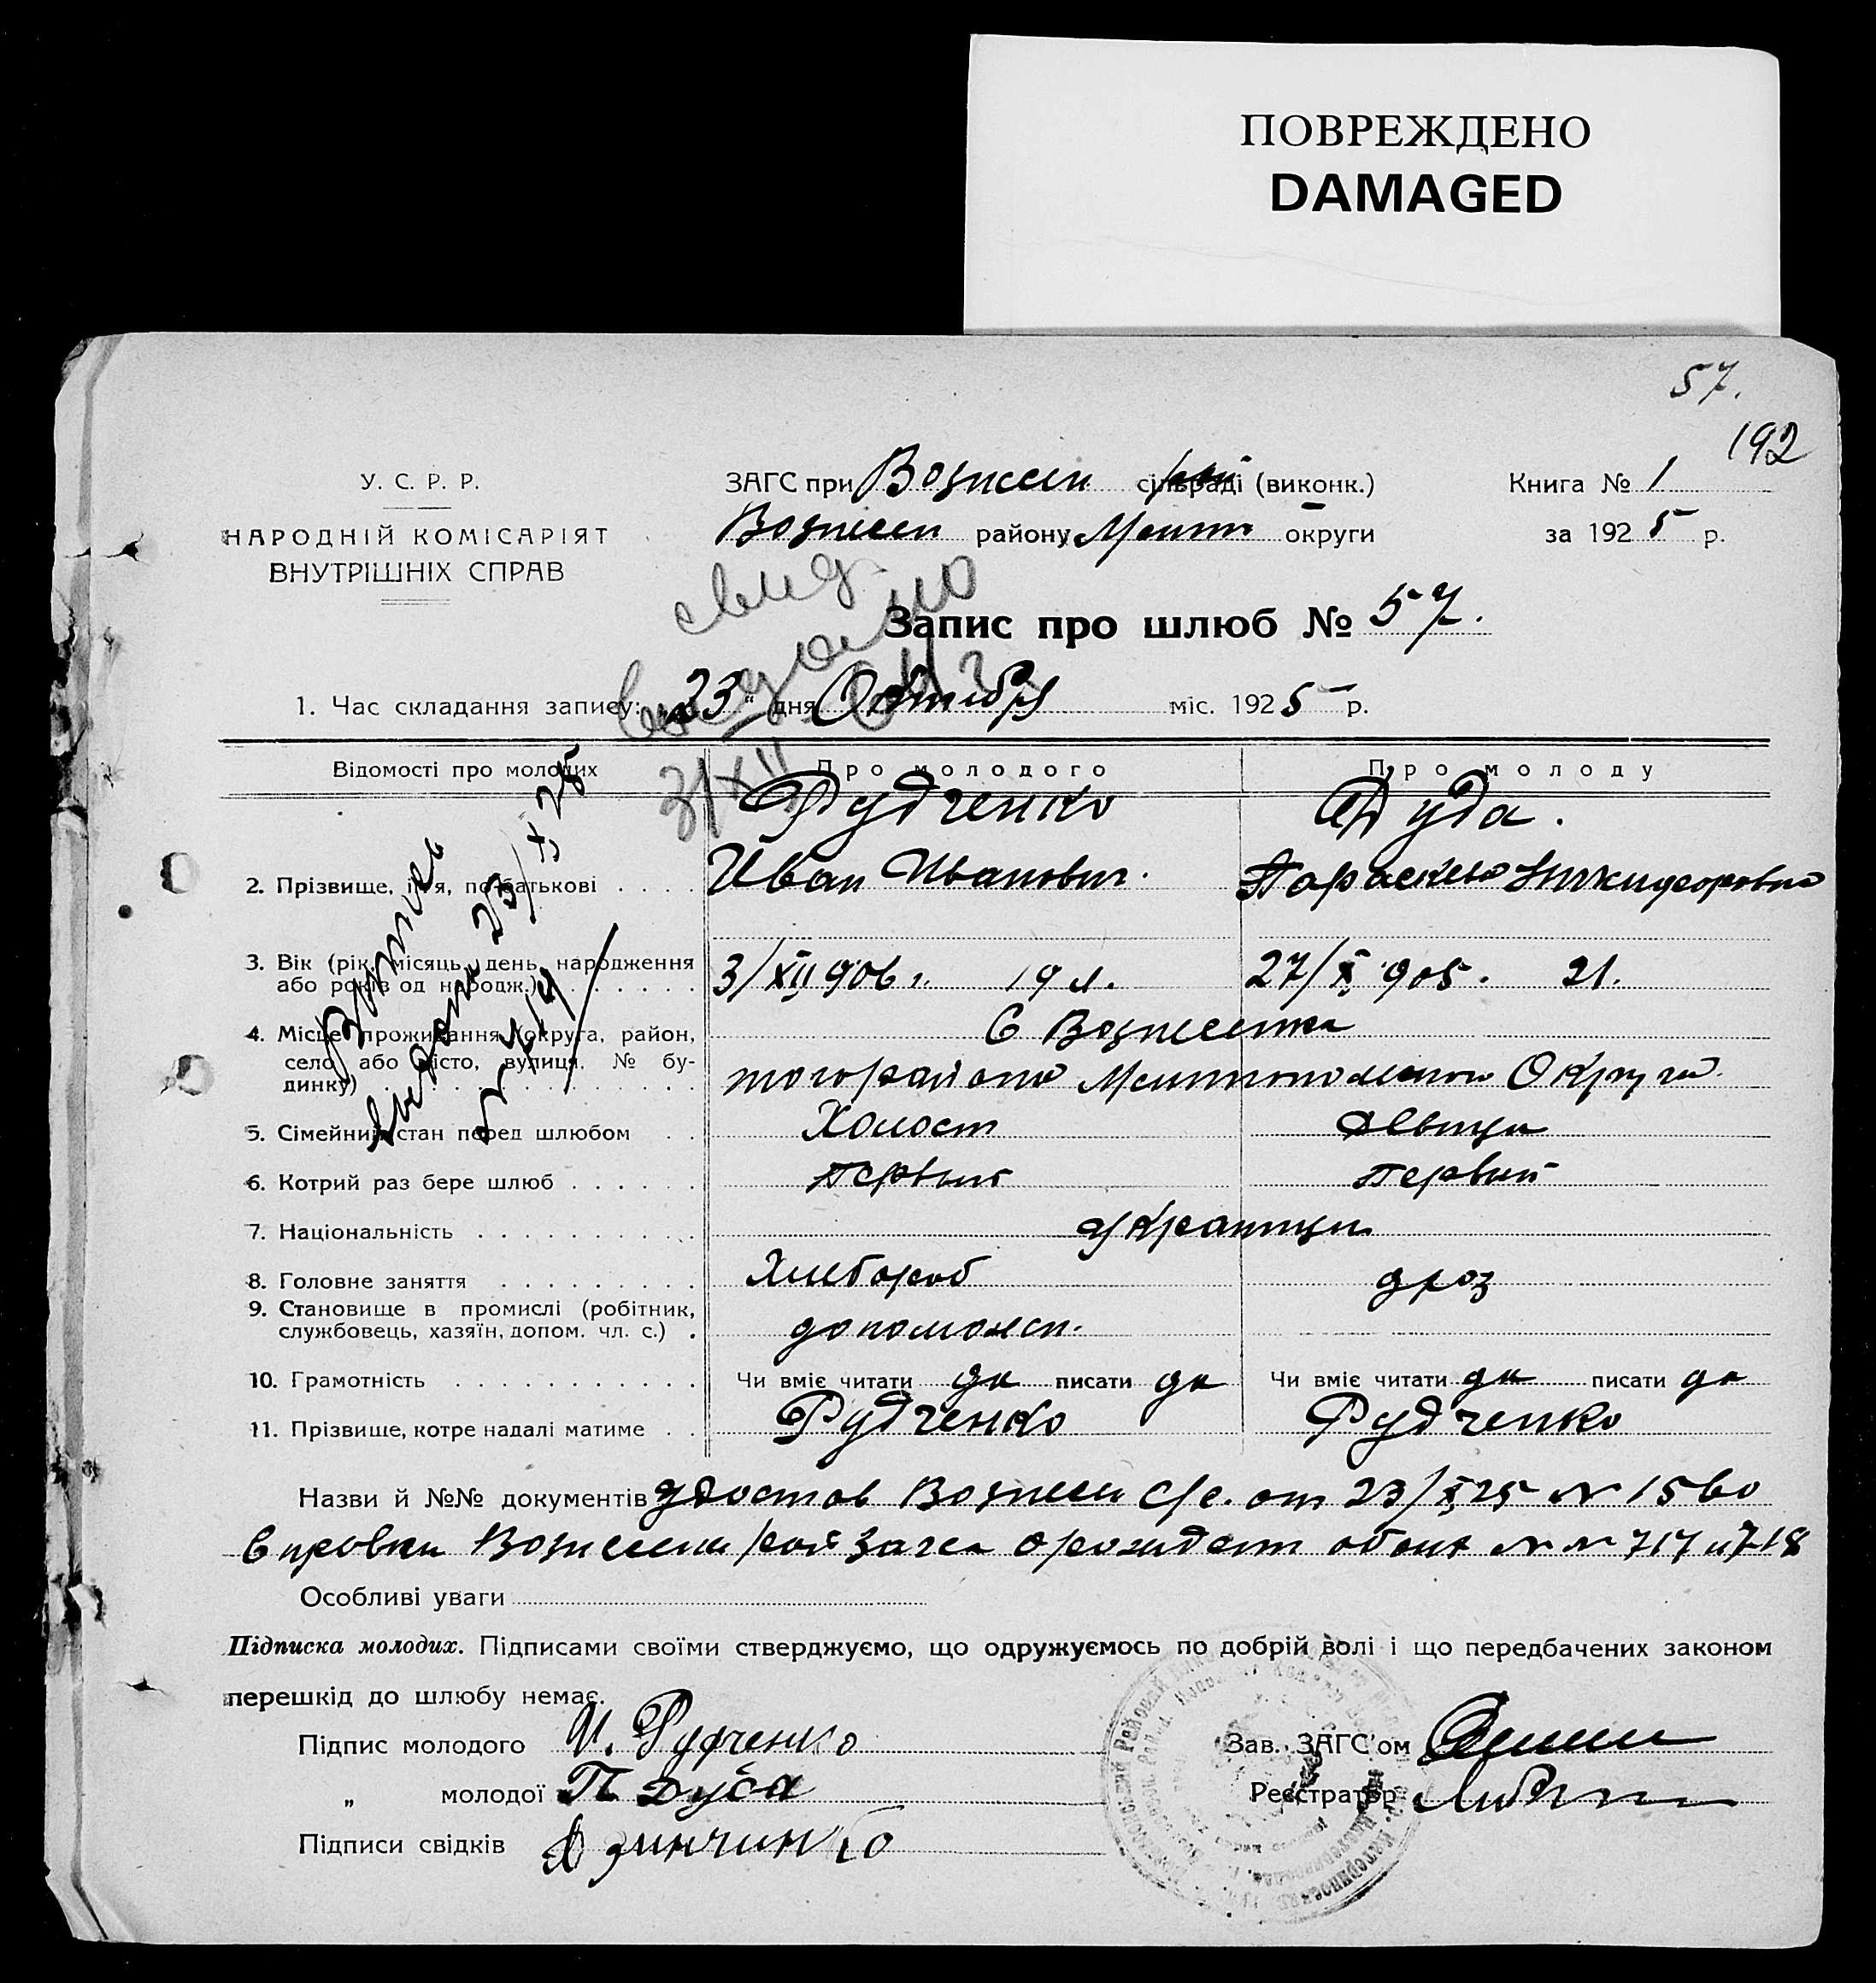 ПОВРЕЖДЕНО
DAMAGED
57.
192
У. С. Р. Р.
НАРОДНІЙ КОМІСАРІЯТ
ВНУТРІШНІХ СПРАВ
ЗАГС при Вознесен сільраді (виконк.)
Вознесен району Мелит округи
Книга № 1
за 1925 р.
свид
выдано
Запис про шлюб № 57.
1. Час складання запису: „23“ дня Октября міс. 1925 р.
3/XII
Відомості про молодих Про молодого Про молоду
Рудченко Дуда.
2. Прізвище, ім'я, по батькові . . . . Иван Иванович. Параскева Никифоровна
3. Вік (рік, місяць, день народження
або років од народж.) . . . . . . . 3/XII 906 г. 19 л. 27/X 905. 21.
4. Місце проживання (округа, район,
село або місто, вулиця, № бу-
динку) . . . . . . . . . . . . . . .
С Вознесенка
того района Мелитопольской Округи
5. Сімейний стан перед шлюбом . . Холост Девица
6. Котрий раз бере шлюб . . . . . . Первый Первый
7. Національність . . . . . . . . . . украинцы
8. Головне заняття . . . . . . . . . Хлебороб
9. Становище в промислі (робітник,
службовець, хазяїн, допом. чл. с.) . допоможн.
10. Грамотність . . . . . . . . . . . Чи вміє читати да писати да Чи вміє читати да писати да
11. Прізвище, котре надалі матиме . . Рудченко Рудченко
выдан 23/X 25
№ 419
Назви й №№ документів удостов Вознесен с/с. от 23/X 25 № 1560
справки Вознесен рай Загса о рожден обоих №№ 717 и 718
Особливі уваги
Підписка молодих. Підписами своїми стверджуємо, що одружуємось по добрій волі і що передбачених законом
перешкід до шлюбу немає.
Підпис молодого И. Рудченко
„ молодої П. Дуда
Підписи свідків Зинчинко
Зав. ЗАГС'ом
Реєстратор